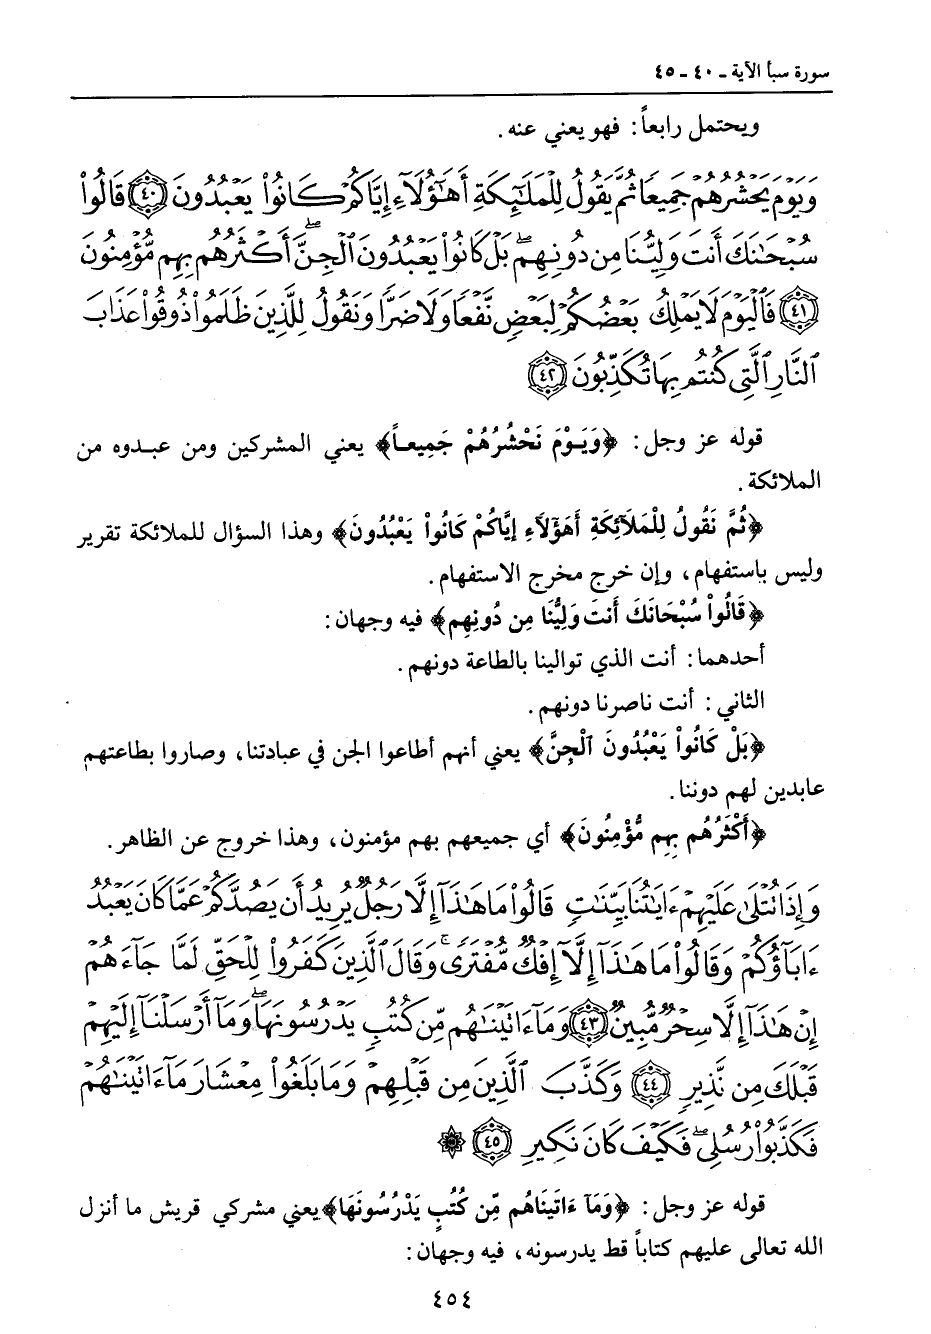 سورة سبأ الآية ـ ٤٠ ـ ٤٥
ويحتمل رابعاً: فهو يعني عنه.
وَيَوْمَ يَحْشُرُهُمْ جَمِيعًا ثُمَّ يَقُولُ لِلْمَلَٰٓئِكَةِ أَهَٰٓؤُلَآءِ إِيَّاكُمْ كَانُوا۟ يَعْبُدُونَ ﴿٤٠﴾ قَالُوا۟
سُبْحَٰنَكَ أَنتَ وَلِيُّنَا مِن دُونِهِم ۖ بَلْ كَانُوا۟ يَعْبُدُونَ ٱلْجِنَّ ۖ أَكْثَرُهُم بِهِم مُّؤْمِنُونَ
﴿٤١﴾ فَٱلْيَوْمَ لَا يَمْلِكُ بَعْضُكُمْ لِبَعْضٍ نَّفْعًا وَلَا ضَرًّا وَنَقُولُ لِلَّذِينَ ظَلَمُوا۟ ذُوقُوا۟ عَذَابَ
ٱلنَّارِ ٱلَّتِى كُنتُم بِهَا تُكَذِّبُونَ ﴿٤٢﴾
قوله عز وجل: ﴿وَيَوْمَ نَحْشُرُهُمْ جَمِيعاً﴾ يعني المشركين ومن عبدوه من
الملائكة.
﴿ثُمَّ نَقُولُ لِلْمَلَآئِكَةِ أَهَؤُلَاءِ إِيَّاكُمْ كَانُواْ يَعْبُدُونَ﴾ وهذا السؤال للملائكة تقرير
وليس باستفهام، وإن خرج مخرج الاستفهام.
﴿قَالُواْ سُبْحَانَكَ أَنتَ وَلِيُّنَا مِن دُونِهِم﴾ فيه وجهان:
أحدهما: أنت الذي توالينا بالطاعة دونهم.
الثاني: أنت ناصرنا دونهم.
﴿بَلْ كَانُواْ يَعْبُدُونَ ٱلْجِنَّ﴾ يعني أنهم أطاعوا الجن في عبادتنا، وصاروا بطاعتهم
عابدين لهم دوننا.
﴿أَكْثَرُهُم بِهِم مُّؤْمِنُونَ﴾ أي جميعهم بهم مؤمنون، وهذا خروج عن الظاهر.
وَإِذَا تُتْلَىٰ عَلَيْهِمْ ءَايَٰتُنَا بَيِّنَٰتٍ قَالُوا۟ مَا هَٰذَآ إِلَّا رَجُلٌ يُرِيدُ أَن يَصُدَّكُمْ عَمَّا كَانَ يَعْبُدُ
ءَابَآؤُكُمْ وَقَالُوا۟ مَا هَٰذَآ إِلَّآ إِفْكٌ مُّفْتَرًى ۚ وَقَالَ ٱلَّذِينَ كَفَرُوا۟ لِلْحَقِّ لَمَّا جَآءَهُمْ
إِنْ هَٰذَآ إِلَّا سِحْرٌ مُّبِينٌ ﴿٤٣﴾ وَمَآ ءَاتَيْنَٰهُم مِّن كُتُبٍ يَدْرُسُونَهَا ۖ وَمَآ أَرْسَلْنَآ إِلَيْهِمْ
قَبْلَكَ مِن نَّذِيرٍ ﴿٤٤﴾ وَكَذَّبَ ٱلَّذِينَ مِن قَبْلِهِمْ وَمَا بَلَغُوا۟ مِعْشَارَ مَآ ءَاتَيْنَٰهُمْ
فَكَذَّبُوا۟ رُسُلِى ۖ فَكَيْفَ كَانَ نَكِيرِ ﴿٤٥﴾ ۞
قوله عز وجل: ﴿وَمَآ ءَاتَيْنَاهُم مِّن كُتُبٍ يَدْرُسُونَهَا﴾ يعني مشركي قريش ما أنزل
الله تعالى عليهم كتاباً قط يدرسونه، فيه وجهان:
٤٥٤